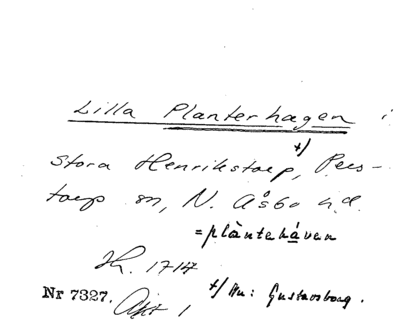 Lilla Planterhagen i
+)
Stora Henrikstorp, Pers-
torp sn, N. Åsbo hd.
= plàntehåven
Jh. 1717
Nr 7327. Akt 1
+) Nu: Gustavsborg.